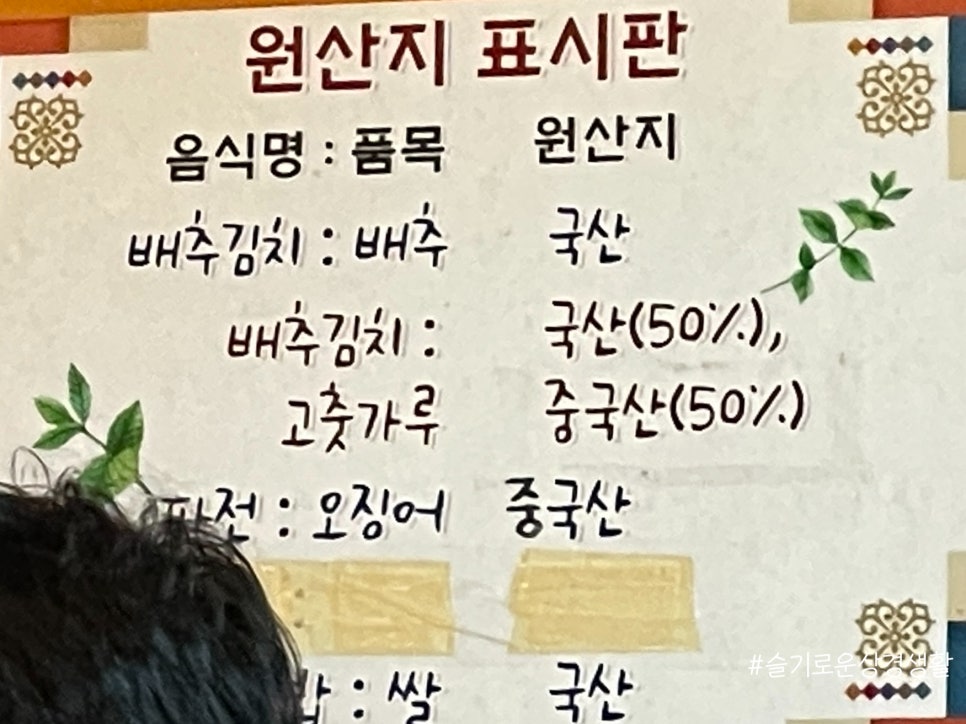 원산지 표시판
음식명 : 품목 원산지
배추김치 : 배추 국산
배추김치 : 국산(50%),
고춧가루 중국산(50%)
파전 : 오징어 중국산
: 쌀 국산
#슬기로운상경생활